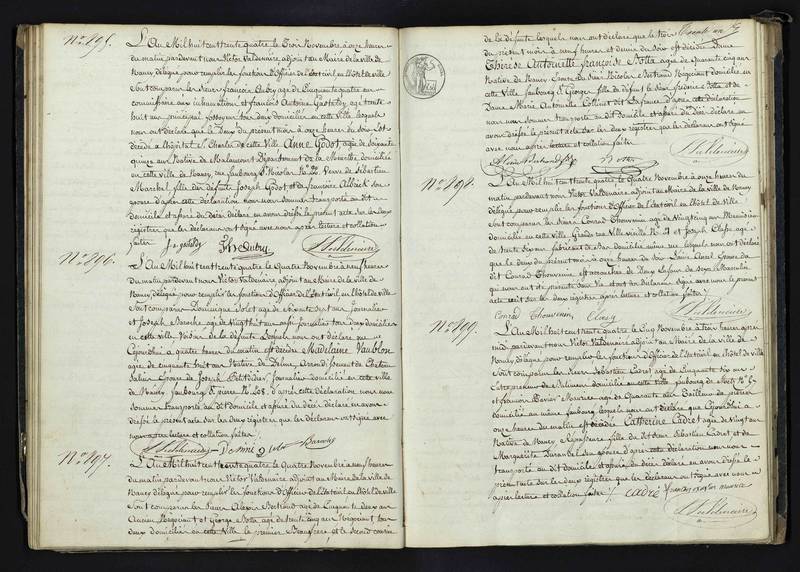 N.° 895.
L'An Mil huit cent trente quatre le Trois Novembre à onze heures
du matin pardevant nous Victor Valdenaire adjoint au Maire de la ville de
Nancy délégué pour remplir les fonctions d'Officier de l'Etat civil en l'hôtel de ville
sont comparus les Sieurs François Aubry agé de Cinquante quatre ans
commissaire aux inhumations et François Antoine Gastaldy, agé trente
huit ans principal fossoyeur tous deux domiciliés en cette ville, lesquels
nous ont déclaré que le Deux du présent mois à onze heures du soir Est
décédée à l'hôpital St Charles de cette Ville Anne Godot agée de Soixante
quinze ans Native de Malaucourt Département de la Meurthe domiciliée
en cette ville de Nancy, rue faubourg St Nicolas N.° 22. Veuve de Sébastien
Maréchal fille des défunts Joseph Godot et de françoise
gouse d'après cette déclaration nous nous sommes transporté au dit
domicile et assuré du décès déclaré en avons dressé le présent acte sur les deux
registres que les déclarants ont signé avec nous après lecture et collation
faites. J. a. gastaldy Aubry Valdenaire
N.° 896.
L'An Mil huit cent trente quatre le Quatre Novembre à neuf heures
du matin pardevant nous Victor Valdenaire adjoint au Maire de la ville de
Nancy délégué pour remplir les fonctions d'Officier de l'Etat civil en l'hôtel de ville
sont comparus Dominique agé de soixante sept ans Journalier
et Joseph Baroche agé de Vingt huit ans aussi Journalier tous deux domiciliés
en cette ville Voisins de la défunte Lesquels nous ont déclaré que
Cejourd'hui à quatre heures du matin est décédée Madelaine Vaublon
agée de cinquante huit ans Native de Delme Arrondissement de Château
Salins Epouse de Joseph Petitdidier Journalier domicilié en cette ville
de Nancy faubourg St pierre N.° 208. d'après cette déclaration nous nous
sommes transporté au dit Domicile et assuré du décès déclaré en avons
dressé le présent acte sur les deux registres que les déclarants ont signé avec
nous après lecture et collation faites.
Valdenaire Baroche
N.° 897.
L'An Mil huit cent trente quatre le Quatre Novembre à neuf heures
du matin pardevant nous Victor Valdenaire adjoint au Maire de la ville de
Nancy délégué pour remplir les fonctions d'Officier de l'Etat civil en l'hôtel de ville
sont comparus les Sieurs Alexis Bertrand agé de Cinquante deux ans
Ancien Négociant et George Botta agé de trente cinq ans Négociant tous
deux domiciliés en cette Ville le premier Beaufrère et le second cousin
de la défunte lesquels nous ont déclaré que le trois
du présent mois à neuf heures et demie du soir est décédée Dame
Thérèse Antoinette françoise Botta agée de Quarante cinq ans
Native de Nancy Epouse du Sieur Nicolas Bertrand Négociant domiciliée en
cette Ville faubourg St George fille du défunt Sieur frédéric Botta et de
Dame Marie Antoinette Collinet d'après cette déclaration
nous nous sommes transporté au dit domicile et assuré du décès déclaré en
avons dressé le présent acte sur les deux registres que les déclarants ont signé
avec nous après lecture et collation faites
Alexis Bertrand Botta Valdenaire
N.° 898.
L'An Mil huit cent trente quatre le Quatre Novembre à onze heures du
matin pardevant nous Victor Valdenaire adjoint au Maire de la ville de Nancy
délégué pour remplir les fonctions d'Officier de l'Etat civil en l'hôtel de Ville
sont comparus les Sieurs Conrad Thouvenin agé de Vingt cinq ans Menuisier
domicilié en cette ville Grande rue Ville vieille N.° 27 et Joseph Clasq agé
de trente six ans fabricant de Bas domicilié même rue lesquels nous ont déclaré
que le deux du présent mois à onze heures du soir Laure Annet Epouse du
dit Conrad Thouvenin est accouchée de Deux Enfans du sexe Masculin
qui nous ont été présenté sans Vie et ont les déclarants signé avec nous le présent
acte écrit sur les deux registres après lecture et collation faites
Conrad Thouvenin Clasq Valdenaire
N.° 899.
L'An Mil huit cent trente quatre le Cinq Novembre à trois heures après
midi pardevant nous Victor Valdenaire adjoint au Maire de la ville de
Nancy délégué pour remplir les fonctions d'Officier de l'Etat civil en l'hôtel de ville
sont comparus les Sieurs Sébastien Cadret agé de Cinquante six ans
Entrepreneur de Bâtimens domicilié en cette ville faubourg de
et françois Xavier Maurice agé de Quarante ans Tailleur de pierres
domicilié au même faubourg lesquels nous ont déclaré que Cejourd'hui à
onze heures du matin est décédée Catherine Cadret agée de Vingt ans
Native de Nancy Repasseuse fille du dit Sieur Sébastien Cadret et de
Marguerite Durand d'après cette déclaration nous nous
transporté au dit domicile et assuré du décès déclaré en avons dressé le
présent acte sur les deux registres que les déclarants ont signé avec nous
après lecture et collation faites. CADRÉ françois xavier maurice
Valdenaire